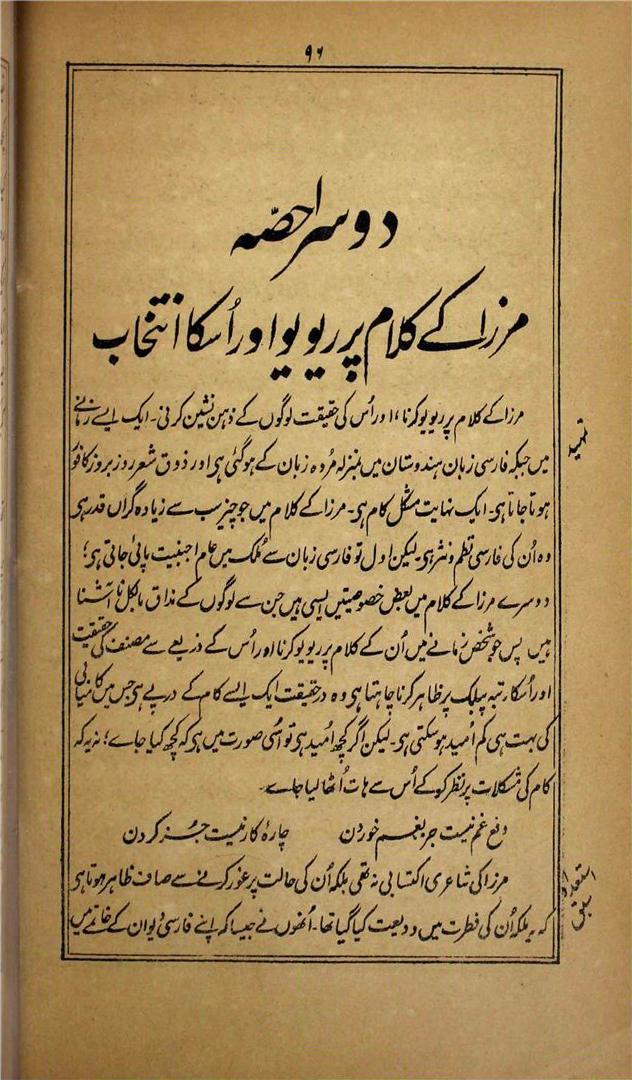 ۹۶
دوسرا حصّہ
مرزا کے کلام پر ریویو اور اُسکا انتخاب
مرزا کے کلام پر ریویو کرنا، اور اُس کی حقیقت لوگوں کے ذہن نشین کرنی۔ ایک ایسے زمانے
تمہید
میں جبکہ فارسی زبان ہندوستان میں بمنزلہ مردہ زبان کے ہوگئی ہی اور ذوق شعر روز بروز کافور
ہوتا جاتا ہی۔ ایک نہایت مشکل کام ہی۔ مرزا کے کلام میں جو چیز سب سے زیادہ گراں قدر ہی
وہ اُن کی فارسی نظم و نثر ہی۔ لیکن اول تو فارسی زبان سے مُلک میں عام اجنبیت پائی جاتی ہی؛
دوسرے مرزا کے کلام میں بعض خصوصیتیں ایسی ہیں جن سے لوگوں کے مذاق بالکل ناآشنا
ہیں پس جو شخص زمانے میں اُن کے کلام پر ریویو کرنا اور اُس کے ذریعے سے مصنف کی حقیقت
اور اُسکا رتبہ پبلک پر ظاہر کرنا چاہتا ہی وہ درحقیقت ایک ایسے کام کے درپے ہی جس میں کامیابی
کی بہت ہی کم اُمید ہوسکتی ہی۔ لیکن اگر کچھ اُمید ہی تو اُسی صورت میں ہی کہ کچھ کیا جاے؛ نہ یہ کہ
کام کی مشکلات پر نظر کرکے اُس سے ہات اُٹھا لیا جاے۔
دفع غم نیست جز بغم خوردن چارۂ کار نیست جز کردن
مرزا کی شاعری اکتسابی نہ تھی بلکہ اُن کی حالت پر غور کرنے سے صاف ظاہر ہوتا ہی
استعداد
کہ یہ ملکہ اُن کی فطرت میں ودیعت کیا گیا تھا۔ اُنھوں نے جیسا کہ اپنے فارسی دیوان کے خاتمے میں